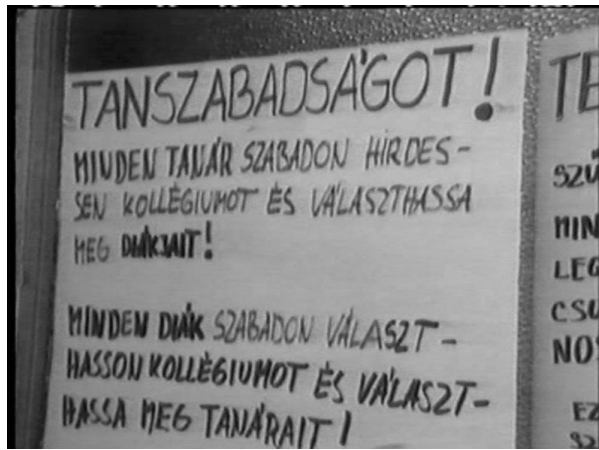 TANSZABADSÁGOT!
MINDEN TANÁR SZABADON HIRDES-
SEN KOLLÉGIUMOT ÉS VÁLASZTHASSA
MEG DIÁKJAIT!
MINDEN DIÁK SZABADON VÁLASZT-
HASSON KOLLÉGIUMOT ÉS VÁLASZT-
HASSA MEG TANÁRAIT!
TE
SZÜ
MIN
LEG
CSU
NOS
EZ
SZ